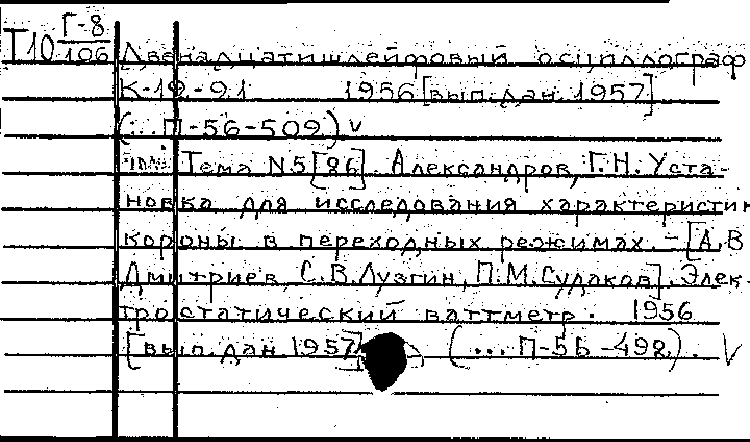 Т10 Г-8/106 Двенадцатишлейфовый осциллограф
К-12-91 1956 [вып.дан. 1957]
(...П-56-509) v
Тема N5 [86]. Александров, Г.Н. Уста-
новка для исследования характеристик
короны в переходных режимах. - [А.В
Дмитриев, С.В.Лузгин, П.М.Судаков]. Элек-
тростатический ваттметр. 1956
[вып.дан 1957] (...П-56-498). V